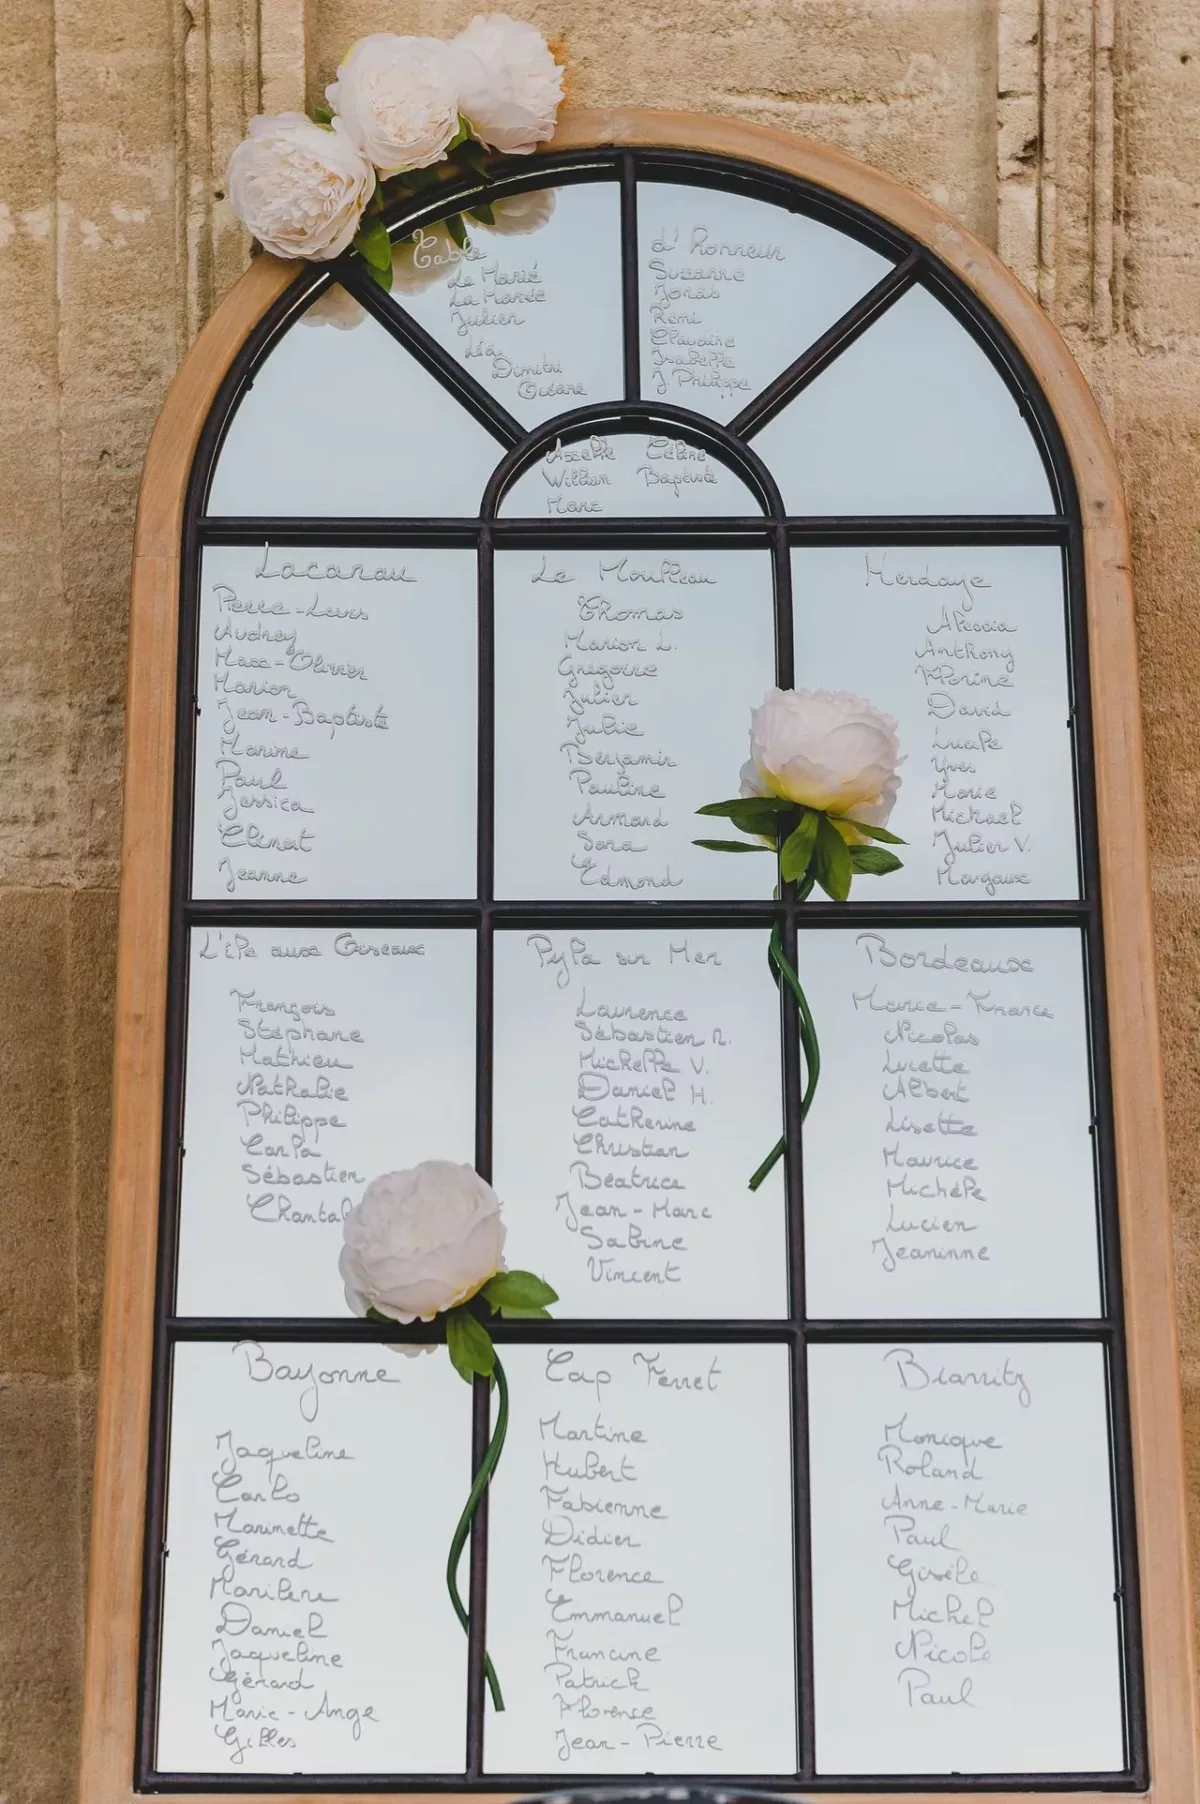 Table
Le Marié
La Mariée
Julien
Léa
Dimitri
Océane
d'honneur
Suzanne
Jonas
Rémi
Claudine
Isabelle
J. Philippe
Axelle Céline
William Baptiste
Marc
Lacanau
Pierre-Louis
Audrey
Max-Olivier
Marion
Jean-Baptiste
Marine
Paul
Jessica
Clément
Jeanne
Le Moulleau
Thomas
Marion L.
Grégoire
Julien
Julie
Benjamin
Pauline
Armand
Sara
Edmond
Hendaye
Alessia
Anthony
Florine
David
Lucile
Yves
Marie
Mickael
Julien V.
Margaux
L'île aux Oiseaux
François
Stéphane
Mathieu
Nathalie
Philippe
Carla
Sébastien
Chantal
Pyla sur Mer
Laurence
Sébastien R.
Michelle V.
Daniel H.
Catherine
Christian
Béatrice
Jean-Marc
Sabine
Vincent
Bordeaux
Marie-France
Nicolas
Lucette
Albert
Lisette
Maurice
Michèle
Lucien
Jeaninne
Bayonne
Jaqueline
Carlo
Marinette
Gérard
Marilene
Daniel
Jaqueline
Gérard
Marie-Ange
Gilles
Cap Ferret
Martine
Hubert
Fabienne
Didier
Florence
Emmanuel
Francine
Patrick
Florence
Jean-Pierre
Biarritz
Monique
Roland
Anne-Marie
Paul
Gisèle
Michel
Nicole
Paul